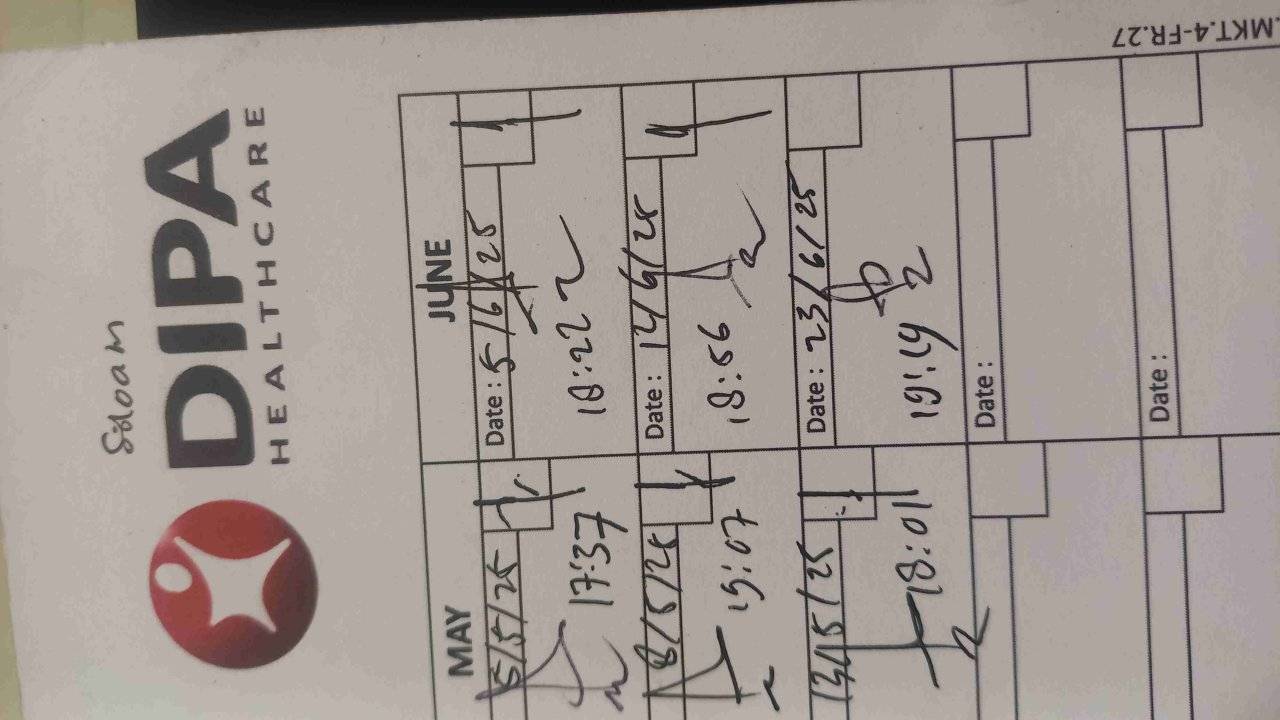 DIPA
HEALTHCARE
MKT.4-FR.27
MAY
5/5/25
17:37
8/5/25
19:07
13/5/25
18:01
JUNE
Date : 5/6/25
18:22
Date : 14/6/25
18:56
Date : 23/6/25
19:14
Date :
Date :